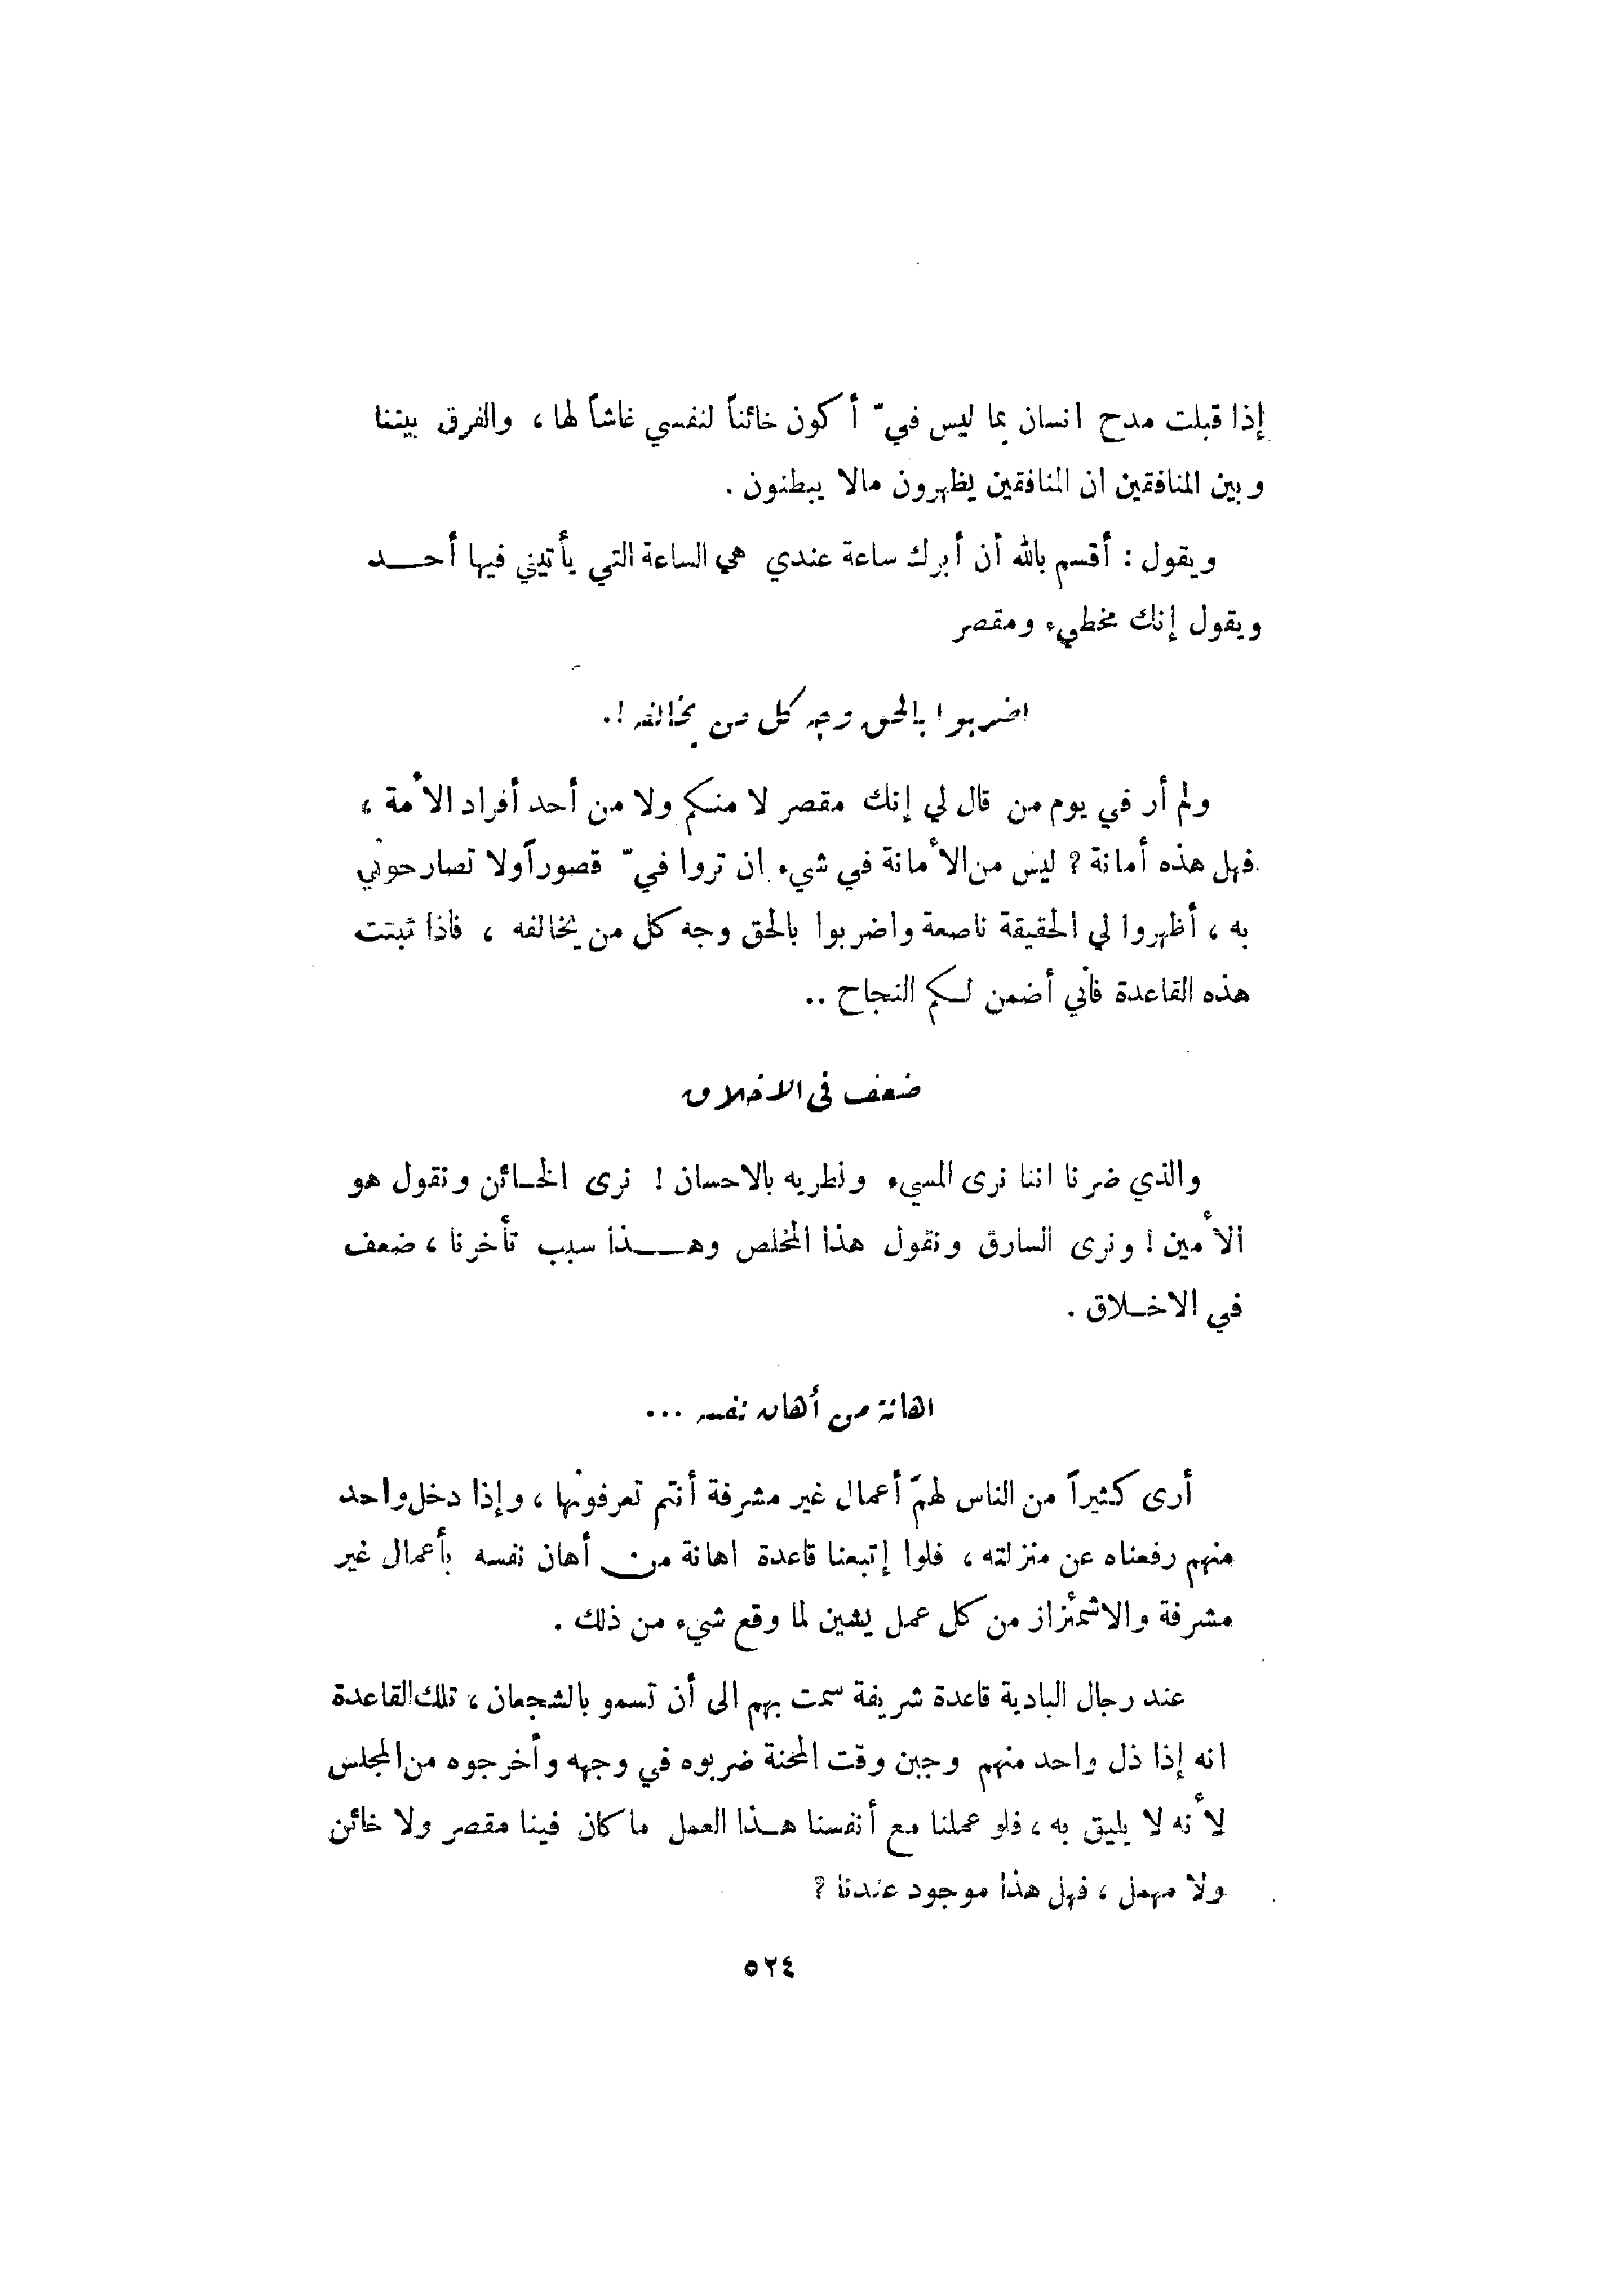 إذا قبلت مدح انسان بما ليس فيّ أكون خائناً لنفسي غاشاً لها ، والفرق بيننا
وبين المنافقين ان المنافقين يظهرون مالا يبطنون .
ويقول : أقسم بالله أن أبرك ساعة عندي هي الساعة التي يأتيني فيها أحــد
ويقول إنك مخطيء ومقصر
اضربوا بالحق وجه كل من يخالفه !.
ولم أر في يوم من قال لي إنك مقصر لا منكم ولا من أحد أفراد الأمة ،
فهل هذه أمانة ؟ ليس من الأمانة في شيء ان تروا فيّ قصوراً ولا تصارحوني
به ، أظهروا لي الحقيقة ناصعة واضربوا بالحق وجه كل من يخالفه ، فاذا ثبتت
هذه القاعدة فاني أضمن لكم النجاح ..
ضعف في الاخلاق
والذي ضرنا اننا نرى المسيء ونطريه بالاحسان ! نرى الخـائن ونقول هو
الأمين ! ونرى السارق ونقول هذا المخلص وهــذا سبب تأخرنا ، ضعف
في الاخـلاق .
اهانة من أهان نفسه ...
أرى كثيراً من الناس لهم أعمال غير مشرفة أنتم تعرفونها ، وإذا دخل واحد
منهم رفعناه عن منزلته ، فلوا إتبعنا قاعدة اهانة من أهان نفسه بأعمال غير
مشرفة والاشمئزاز من كل عمل يشين لما وقع شيء من ذلك .
عند رجال البادية قاعدة شريفة سمت بهم الى أن تسمو بالشجعان ، تلك القاعدة
انه إذا ذل واحد منهم وجبن وقت المحنة ضربوه في وجهه وأخرجوه من المجلس
لأنه لا يليق به ، فلو عملنا مع أنفسنا هـذا العمل ما كان فينا مقصر ولا خائن
ولا مهمل ، فهل هذا موجود عندنا ؟
٥٢٤